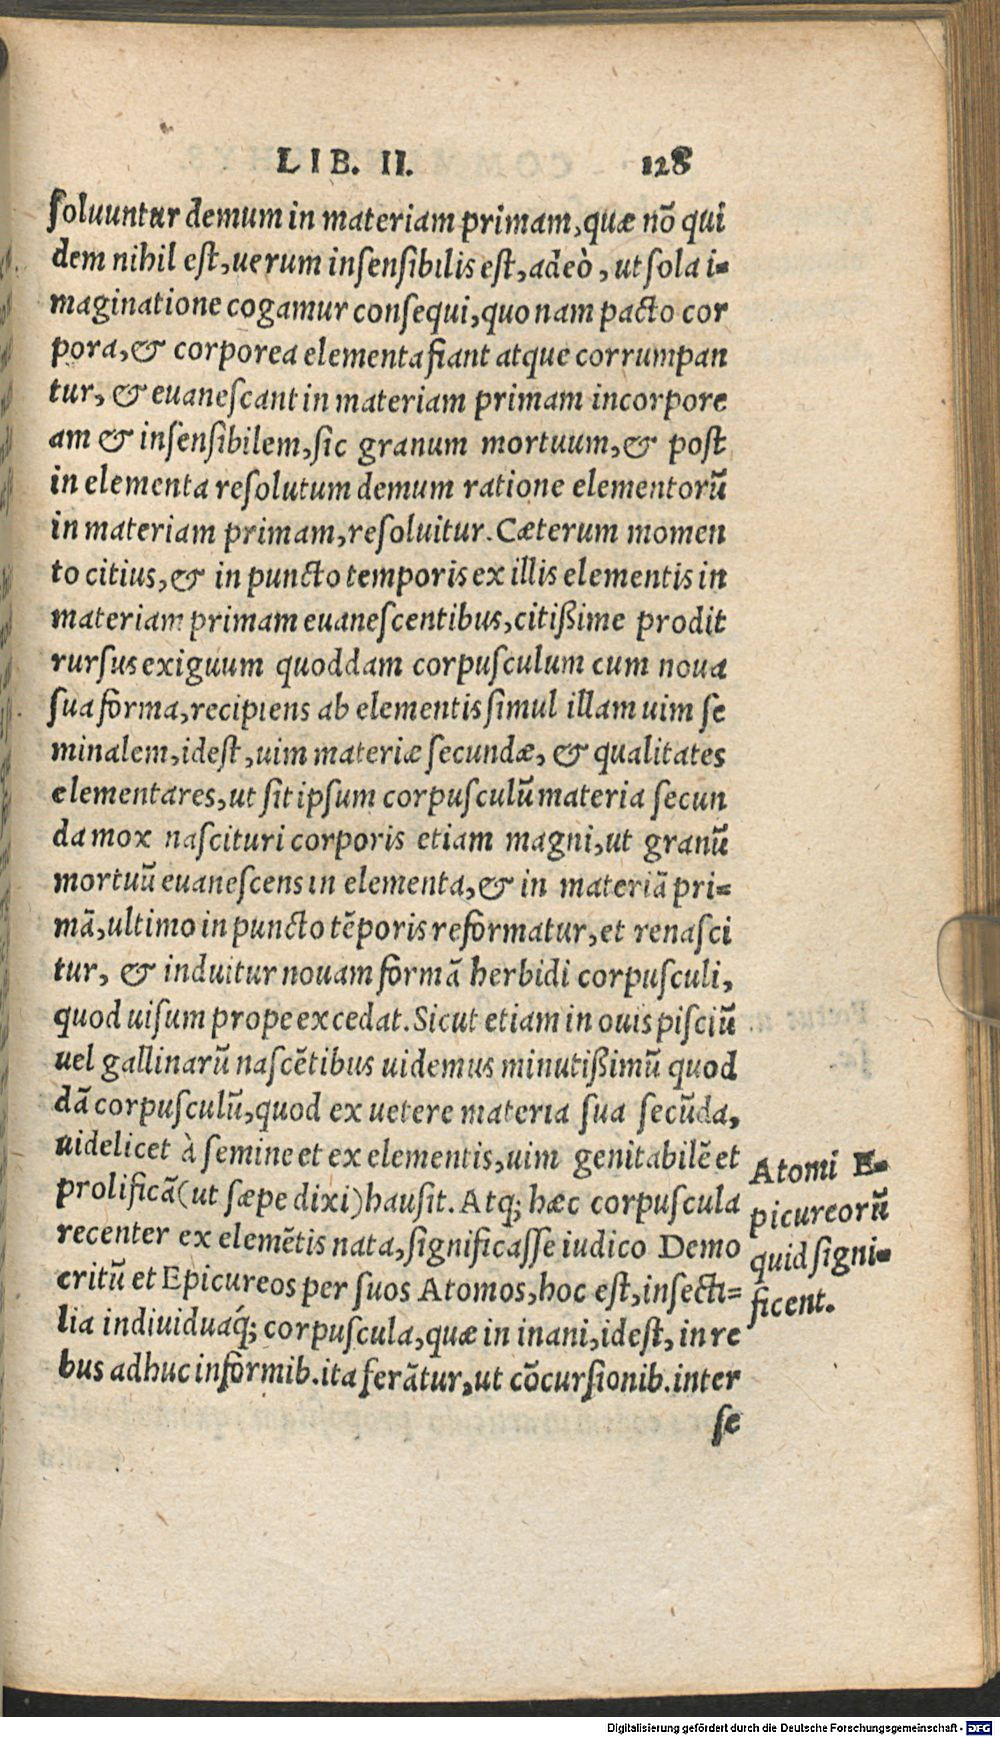 LIB. II. 128
soluuntur demum in materiam primam, quæ nõ qui
dem nihil est, uerum insensibilis est, adeò, ut sola i=
maginatione cogamur consequi, quo nam pacto cor
pora, & corporea elementa fiant atque corrumpan
tur, & euanescant in materiam primam incorpore
am & insensibilem, sic granum mortuum, & post
in elementa resolutum demum ratione elementorũ
in materiam primam, resoluitur. Cæterum momen
to citius, & in puncto temporis ex illis elementis in
materiam primam euanescentibus, citißime prodit
rursus exiguum quoddam corpusculum cum noua
sua forma, recipiens ab elementis simul illam uim se
minalem, idest, uim materiæ secundæ, & qualitates
elementares, ut sit ipsum corpusculũ materia secun
da mox nascituri corporis etiam magni, ut granũ
mortuũ euanescens in elementa, & in materiã pri=
mã, ultimo in puncto tẽporis reformatur, et renasci
tur, & induitur nouam formã herbidi corpusculi,
quod uisum prope excedat. Sicut etiam in ouis pisciũ
uel gallinarũ nascẽtibus uidemus minutißimũ quod
dã corpusculũ, quod ex uetere materia sua secũda,
uidelicet à semine et ex elementis, uim genitabilẽ et
prolificã (ut sæpe dixi) hausit. Atq; hæc corpuscula
recenter ex elemẽtis nata, significasse iudico Demo
critũ et Epicureos per suos Atomos, hoc est, insecti=
lia indiuiduaq́; corpuscula, quæ in inani, idest, in re
bus adhuc informib. ita ferãtur, ut cõcursionib. inter
se
Atomi E=
picureorũ
quid signi=
ficent.
Digitalisierung gefördert durch die Deutsche Forschungsgemeinschaft - DFG